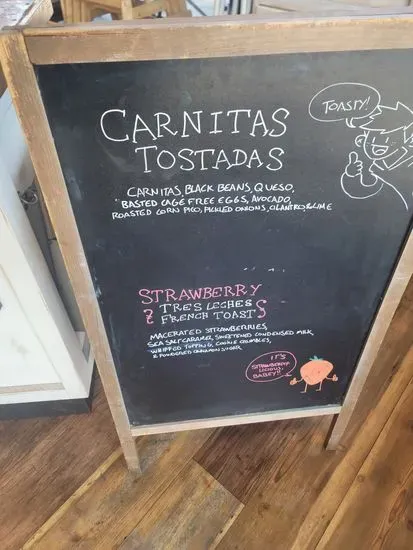 TOASTY!
CARNITAS
TOSTADAS
CARNITAS BLACK BEANS, QUESO,
BASTED CAGE FREE EGGS, AVOCADO,
ROASTED CORN PICO, PICKLED ONIONS, CILANTRO, & LIME
STRAWBERRY
TRES LECHES
FRENCH TOAST
MACERATED STRAWBERRIES,
SEA SALT CARAMEL, SWEETENED CONDENSED MILK
WHIPPED TOPPING, COOKIE CRUMBLES,
& POWDERED CINNAMON SUGAR
IT'S
STRAWBERRY-
LICIOUS,
BABEY!!